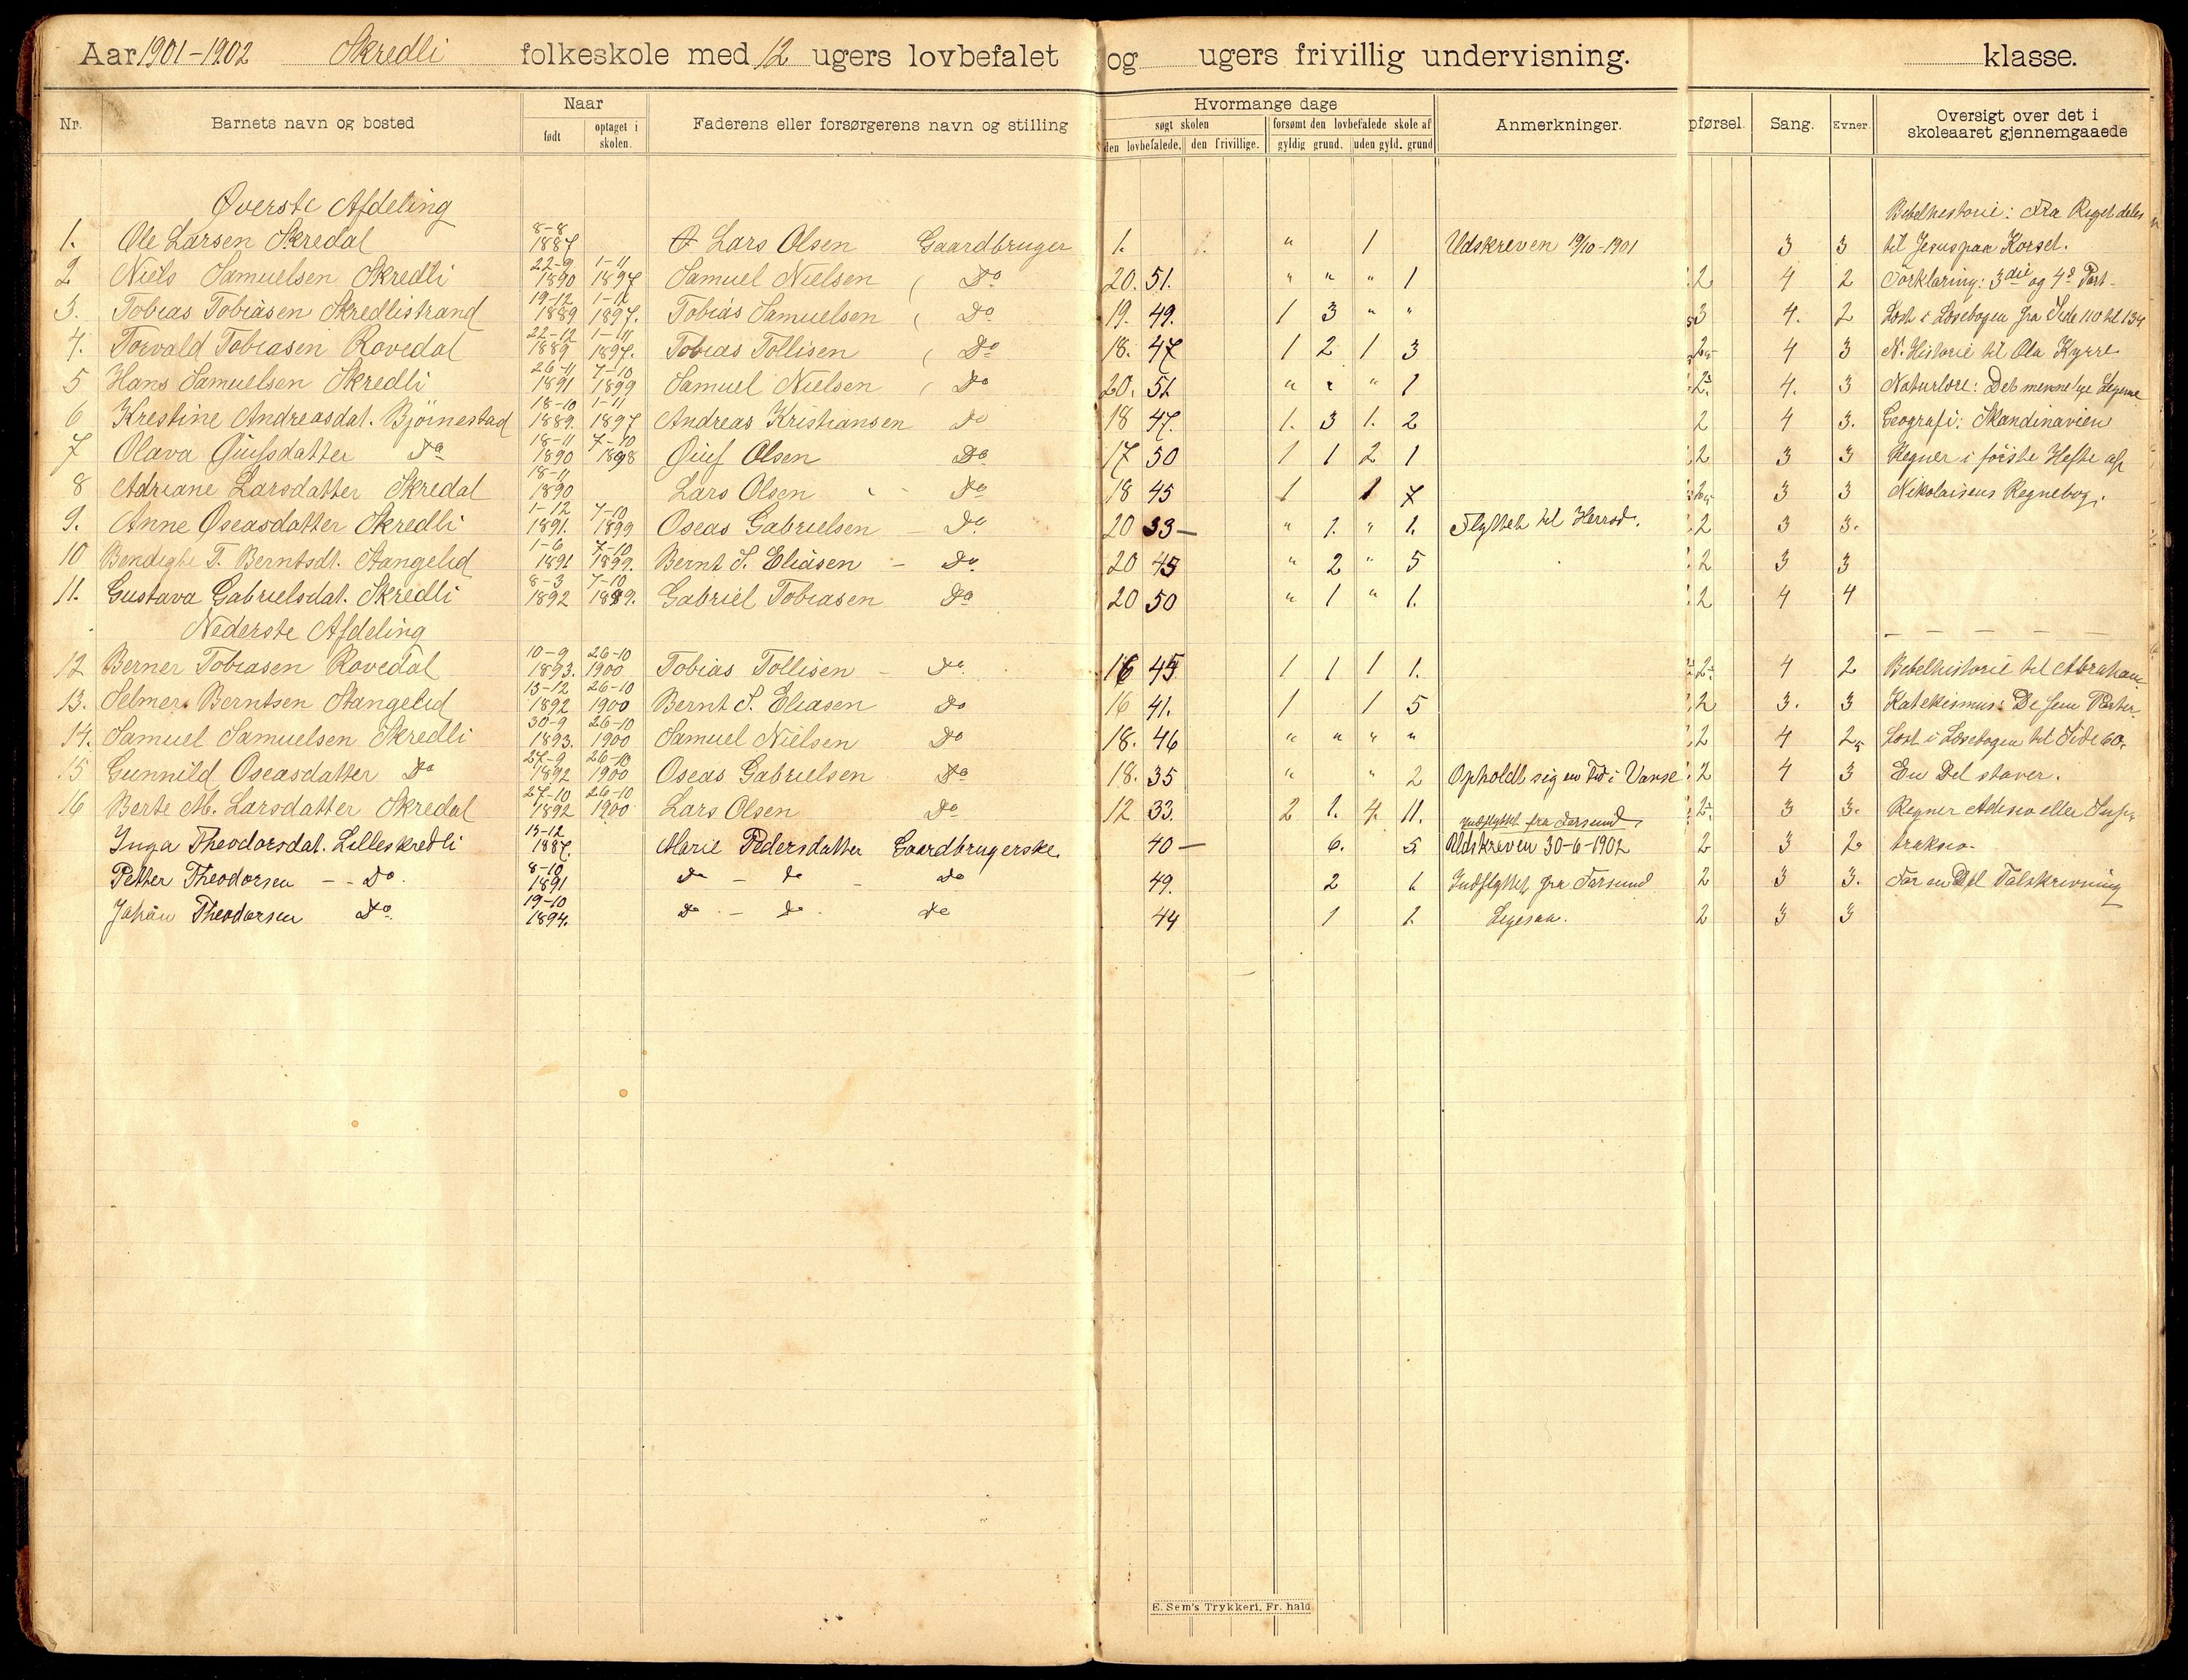 Aar 1901-1902 Skredli folkeskole med 12 ugers lovbefalet og ugers frivillig undervisning. klasse.
Nr. Barnets navn og bosted Naar født optaget i skolen. Faderens eller forsørgerens navn og stilling Hvormange dage søgt skolen den lovbefalede. den frivillige. forsømt den lovbefalede skole af gyldig grund. uden gyld. grund Anmerkninger. pførsel. Sang. Evner. Oversigt over det i skoleaaret gjennemgaaede
Øverste Afdeling Bebelhestorie: Fra Riget deles
1. Ole Larsen Skredal 8-8 1887 Lars Olsen Gaardbruger 1. " 1 Udskreven 19/10-1901 3 3 til Jesus paa Korset.
2 Niels Samuelsen Skredli 22-9 1890 1-11 1897 Samuel Nielsen Do 20. 51. " " " 1 2 4 2 Forklaring: 3die og 4de Part
3. Tobias Tobiasen Skredlistrand 19-12 1889 1-11 1897. Tobias Samuelsen Do 19. 49. 1 3 " " 3 4. 2 Læst i Læsebogen fra Side 110 til 134
4. Torvald Tobiasen Rovedal 22-12 1889 1-11 1897. Tobias Tollisen Do 18. 47 1 2 1 3 2 4 3 N. Historie til Ola Kyrre
5 Hans Samuelsen Skredli 26-11 1891 7-10 1899 Samuel Nielsen Do 20. 51 " " " 1 2 4. 3 Naturlære: Det menneskelige Legeme
6 Krestine Andreasdat. Bjørnestad 18-10 1889. 1-11 1897 Andreas Kristiansen Do 18 47. 1. 3 1. 2 2 4 3. Geografi: Skandinavien
7 Olava Øiufsdatter Do 18-11 1890 7-10 1898 Øiuf Olsen Do 17 50 1 1 2 1 2 3 3 Regner i første Hefte af
8 Adriane Larsdatter Skredal 18-11 1890 Lars Olsen Do 18 45 1 1 7 2 3 3 Nikolaisens Regnebog.
9. Anne Oseasdatter Skredli 1-12 1891. 7-10 1899 Oseas Gabrielsen Do 20 33 — " 1. " 1. Flyttet til Herred. 2 3 3.
10 Bendigte T. Berntsdt. Stangelid 1-6 1891 7-10 1899. Bernt S. Eliasen Do 20 45 " 2 " 5 2 3 3
11. Gustava Gabrielsdat. Skredli 8-3 1892 7-10 1899. Gabriel Tobiasen Do 20 50 " 1 " 1. 2 4 4
Nederste Afdeling
12 Berner Tobiasen Rovedal 10-9 1893. 26-10 1900 Tobias Tollisen Do 16 45 1 1 1 1. 2 4 2 Bebelhistorie til Abraham
13. Selmer Berntsen Stangelid 13-12 1892 26-10 1900 Bernt S. Eliasen Do 16 41. 1 1 5 2 3. 3 Katekismus: De fem Parter.
14. Samuel Samuelsen Skredli 30-9 1893. 26-10 1900 Samuel Nielsen Do 18. 46 " " " " 2 4 2 Læst i Læsebogen til Side 60.
15 Gunnild Oseasdatter Do 27-9 1892 26-10 1900 Oseas Gabrielsen Do 18. 35 " " 2 Opholdt sig en Tid i Vanse 2 4 3 En Del staver.
16 Berte M. Larsdatter Skredal 27-10 1892 26-10 1900 Lars Olsen Do 12 33. 2 1. 4. 11. 2 3 3. Regner Adisio eller Sup-
Indflyttet fra Farsund
Inga Theodorsdat. Lilleskredli 13-12 1887. Marie Pedersdatter Gaardbrugerske. 40 — 6. 5 Udskreven 30-6-1902 2 3 2 traksio-
Petter Theodorsen - - Do. 8-10 1891 Do - Do - Do 49. 2 1 Indflyttet fra Farsund 2 3 3. Før en Del Talskrivning
Johan Theodorsen Do. 19-10 1894. Do - Do. Do 44 1 1. Ligesaa. 2 3 3
E. Sem's Trykkeri, Fr. hald